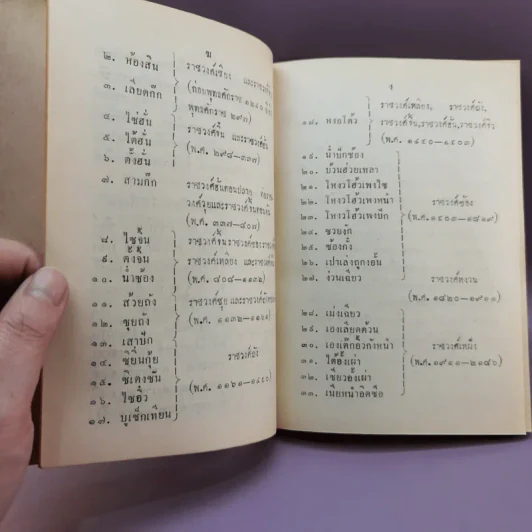 ฆ
๒. ห้องสิน
ราชวงศ์เซียง และราชวงศ์จิว
๓. เลียดก๊ก
(ก่อนพุทธศักราช
พุทธศักราช
๔. ไซ่ฮั่น
ราชวงศ์จิ้น และราชวงศ์ฮั่น
๕. ไต้ฮั่น
(พ.ศ. ๒๙๘–๓๓๗)
๖. ตั้งฮั่น
๗. สามก๊ก
ราชวงศ์ฮั่นตอนปลาย
วงศ์วุยและราชวงศ์จิ้นตอนต้น
(พ.ศ. ๓๓๗–๘๐๗)
๘. ไซจิ้น
๙. ตั้งจิ้น
ราชวงศ์เหลียง และราชวงศ์
๑๐. น่ำซ้อง
(พ.ศ. ๘๐๘–๑๑๓๒)
๑๑. ส้วยถัง
ราชวงศ์ซุย และราชวงศ์ถัง
๑๒. ซุยถัง
(พ.ศ. ๑๑๓๒–๑๑๖๑)
๑๓. เสาปัก
๑๔. ซิยิ่นกุ้ย
ราชวงศ์ถัง
๑๕. ซิเตงซัน
(พ.ศ. ๑๑๖๑–๑๔๕๐)
๑๖. ไซอิ๋ว
๑๗. บูเช็กเทียน
ง
ราชวงศ์เหลียง, ราชวงศ์ถัง,
๑๘. หงอโต้ว
ราชวงศ์จิ้น, ราชวงศ์ฮั่น, ราชวงศ์จิว
(พ.ศ. ๑๔๕๐–๑๕๐๓)
๑๙. น่ำปักซ้อง
๒๐. บ้วนฮ่วยเหลา
๒๑. โหงวโฮ้วเพงไซ
๒๒. โหงวโฮ้วเพงหนำ
๒๓. โหงวโฮ้วเพงปัก
ราชวงศ์ซ้อง
๒๔. ซวยงัก
(พ.ศ. ๑๕๐๓–๑๘๑๙)
๒๕. ซ้องกั๋ง
๒๖. เปาเล่งถูกงอั้น
๒๗. ง่วนเฉียว
ราชวงศ์หงวน
(พ.ศ. ๑๘๒๐–๑๙๑๑)
๒๘. เม่งเฉียว
๒๙. เองเลียดต้วน
๓๐. เองเต๊กอิ้วกังหนำ
ราชวงศ์เหม็ง
๓๑. ไต้อั้งเผ่า
(พ.ศ. ๑๙๑๑–๒๑๘๖)
๓๒. เซียวอั้งเผ่า
๓๓. เนียหนำอิดซือ